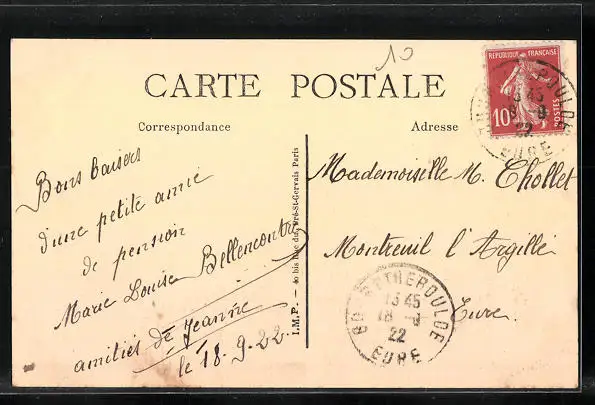 10
CARTE POSTALE
Correspondance
Adresse
REPUBLIQUE FRANÇAISE
10c
POSTES
13 45
18 -9
22
EURE
Bons baisers
d'une petite amie
de pension
Marie Louise Bellencontre
amitiés de Jeanne
le 18.9.22
I.M.P. — 10 bis rue du Pré-St-Gervais Paris
Mademoiselle M. Chollet
Montreuil l'Argillé
Eure.
BOURGTHEROULDE
13 45
18 -9
22
EURE